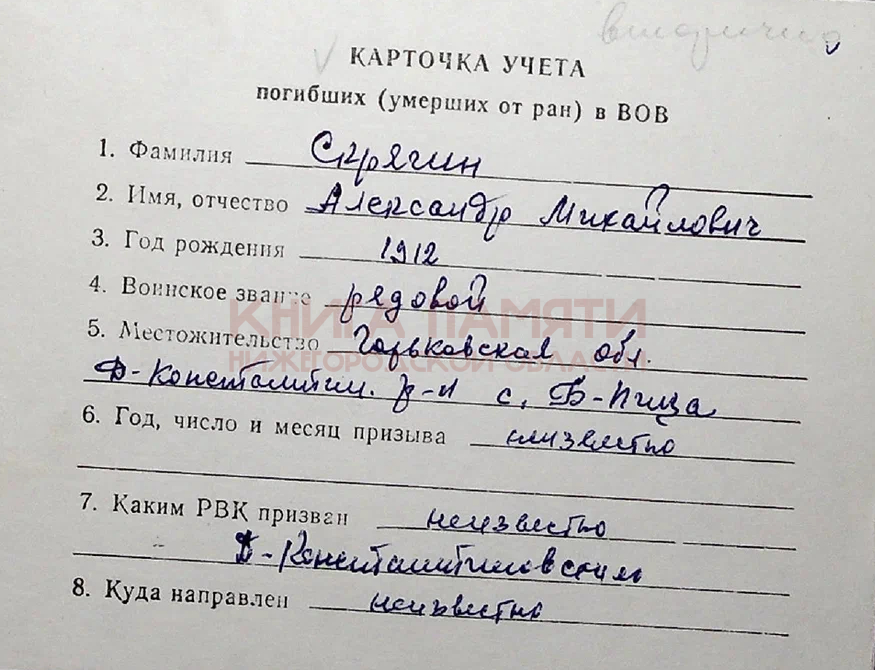 вторично
КАРТОЧКА УЧЕТА
погибших (умерших от ран) в ВОВ
1. Фамилия Скрягин
2. Имя, отчество Александр Михайлович
3. Год рождения 1912
4. Воинское звание рядовой
КНИГА ПАМЯТИ
5. Местожительство Горьковская обл.
НИЖЕГОРОДСКОЙ ОБЛАСТИ
Д-Константин. р-н с. Б-Пица
6. Год, число и месяц призыва неизвестно
7. Каким РВК призван неизвестно
Д-Константиновским
8. Куда направлен неизвестно